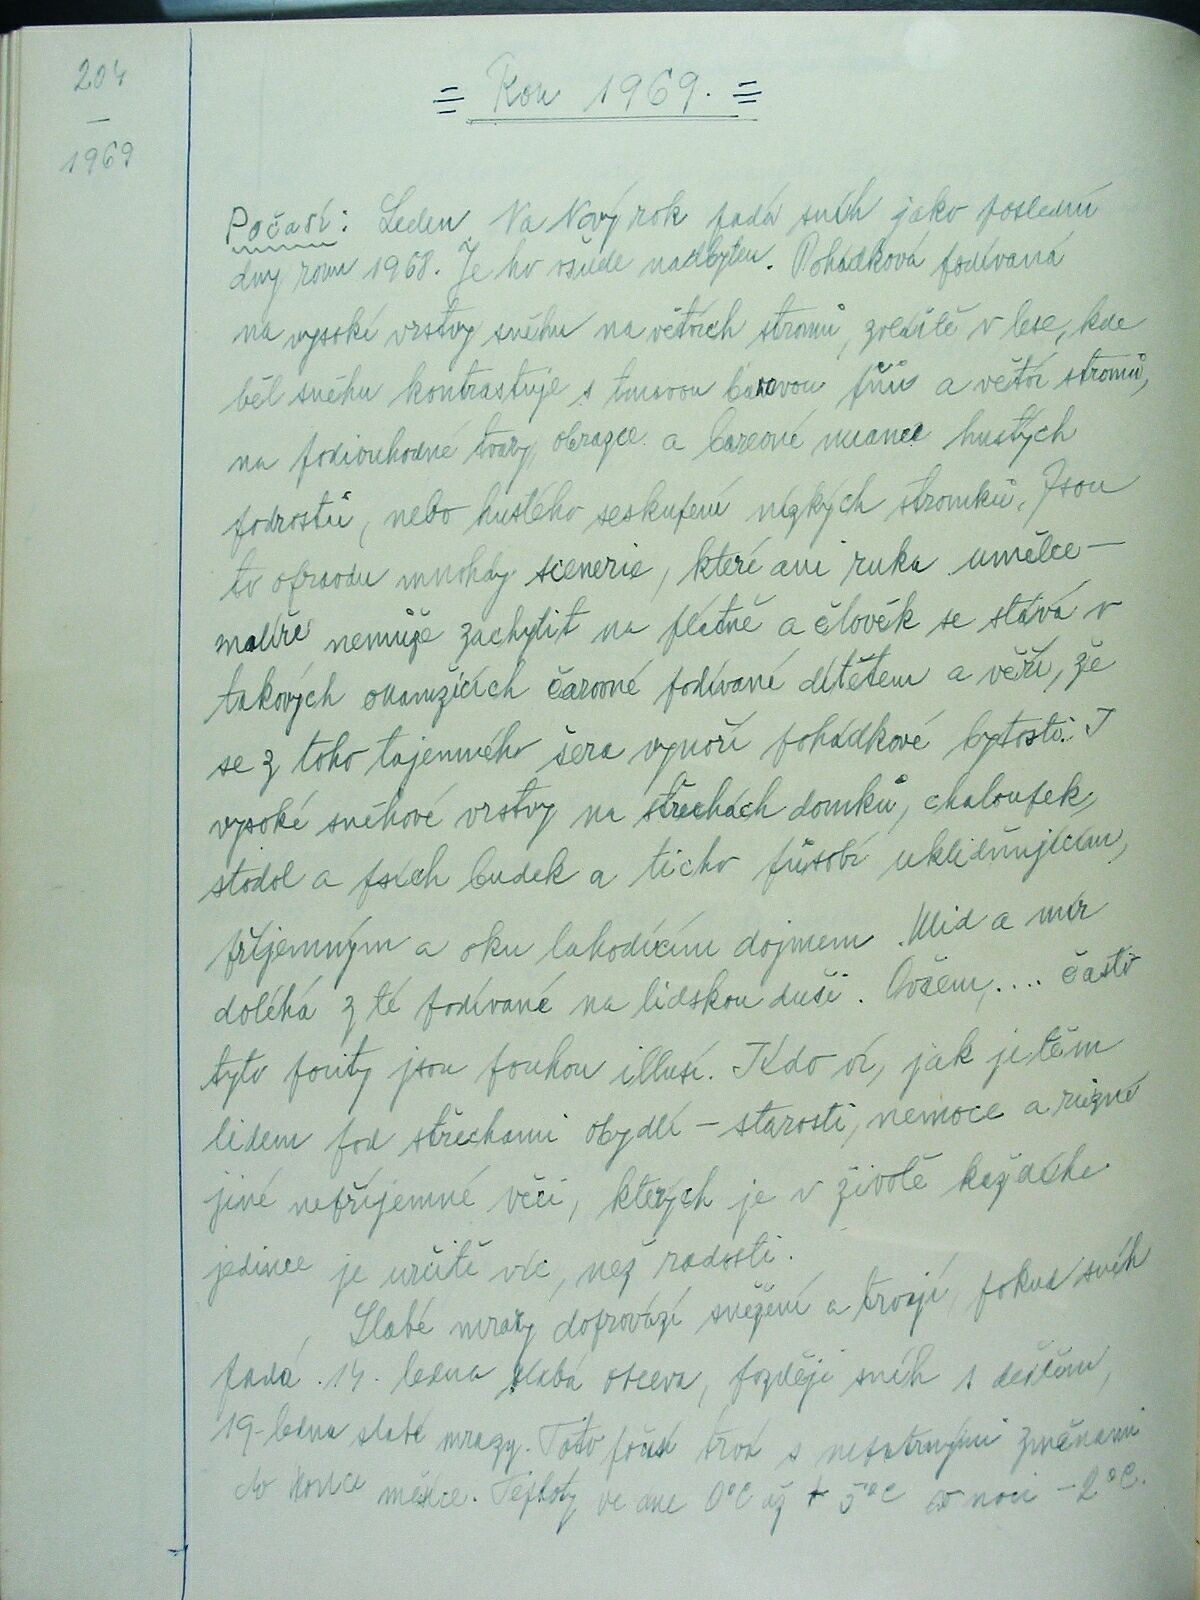 204
—
1969
= Rok 1969. =
Počasí: Leden. Na Nový rok padá sníh jako poslední
dny roku 1968. Je ho všude nadbytek. Pohádková podívaná
na vysoké vrstvy sněhu na větvích stromů, zvláště v lese, kde
běl sněhu kontrastuje s tmavou barvou pňů a větví stromů,
na podivuhodné tvary, obrazce a barevné nuance hustých
podrostů, nebo hustého seskupení nízkých stromků. Jsou
to opravdu mnohdy scenerie, které ani ruka umělce –
malíře nemůže zachytit na plátně a člověk se stává v
takových okamžicích čarovné podívané dítětem a věří, že
se z toho tajemného šera vynoří pohádkové bytosti. I
vysoké sněhové vrstvy na střechách domků, chaloupek,
stodol a psích budek a ticho působí uklidňujícím,
příjemným a oku lahodícím dojmem. Klid a mír
doléhá z té podívané na lidskou duši. Ovšem, .... často
tyto pocity jsou pouhou illusí. Kdo ví, jak je těm
lidem pod střechami obydlí – starosti, nemoce a různé
jiné nepříjemné věci, kterých je v životě každého
jedince je určitě víc, než radosti.
Slabé mrazy doprovází sněžení a trvají, pokud sníh
padá. 14. ledna slabá obleva, později sníh s deštěm,
19. ledna slabé mrazy. Toto počasí trvá s nepatrnými změnami
do konce měsíce. Teploty ve dne 0°C až + 5°C v noci – 2°C.